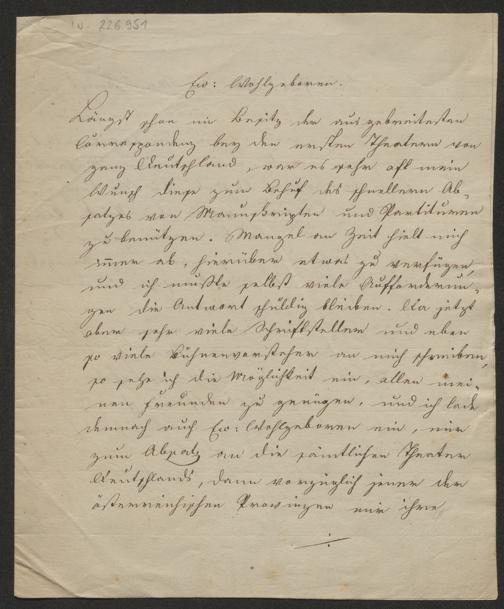 I.N. 226.951
Ew: Wohlgeboren.
Längst schon im Besitz der ausgebreitesten
Correspondenz bey den ersten Theatern von
ganz Deutschland, war es sehr oft mein
Wunsch diese zum Behuf des schnellern Ab-
satzes von Manuskripten und Partituren
zu benützen. Mangel an Zeit hielt mich
immer ab, hierüber etwas zu verfügen,
und ich mußte selbst viele Aufforderun-
gen die Antwort schuldig bleiben. Da jetzt
aber sehr viele Schriftsteller und eben
so viele Bühnenvorsteher an mich schreiben,
so sehe ich die Möglichkeit ein, allen mei-
nen Freunden zu genügen, und ich lade
demnach auch Ew: Wohlgeboren ein, mir
zum Absatz an die sämtlichen Theater
Deutschlands, dann vorzüglich jener der
österreichischen Provinzen mir ihre